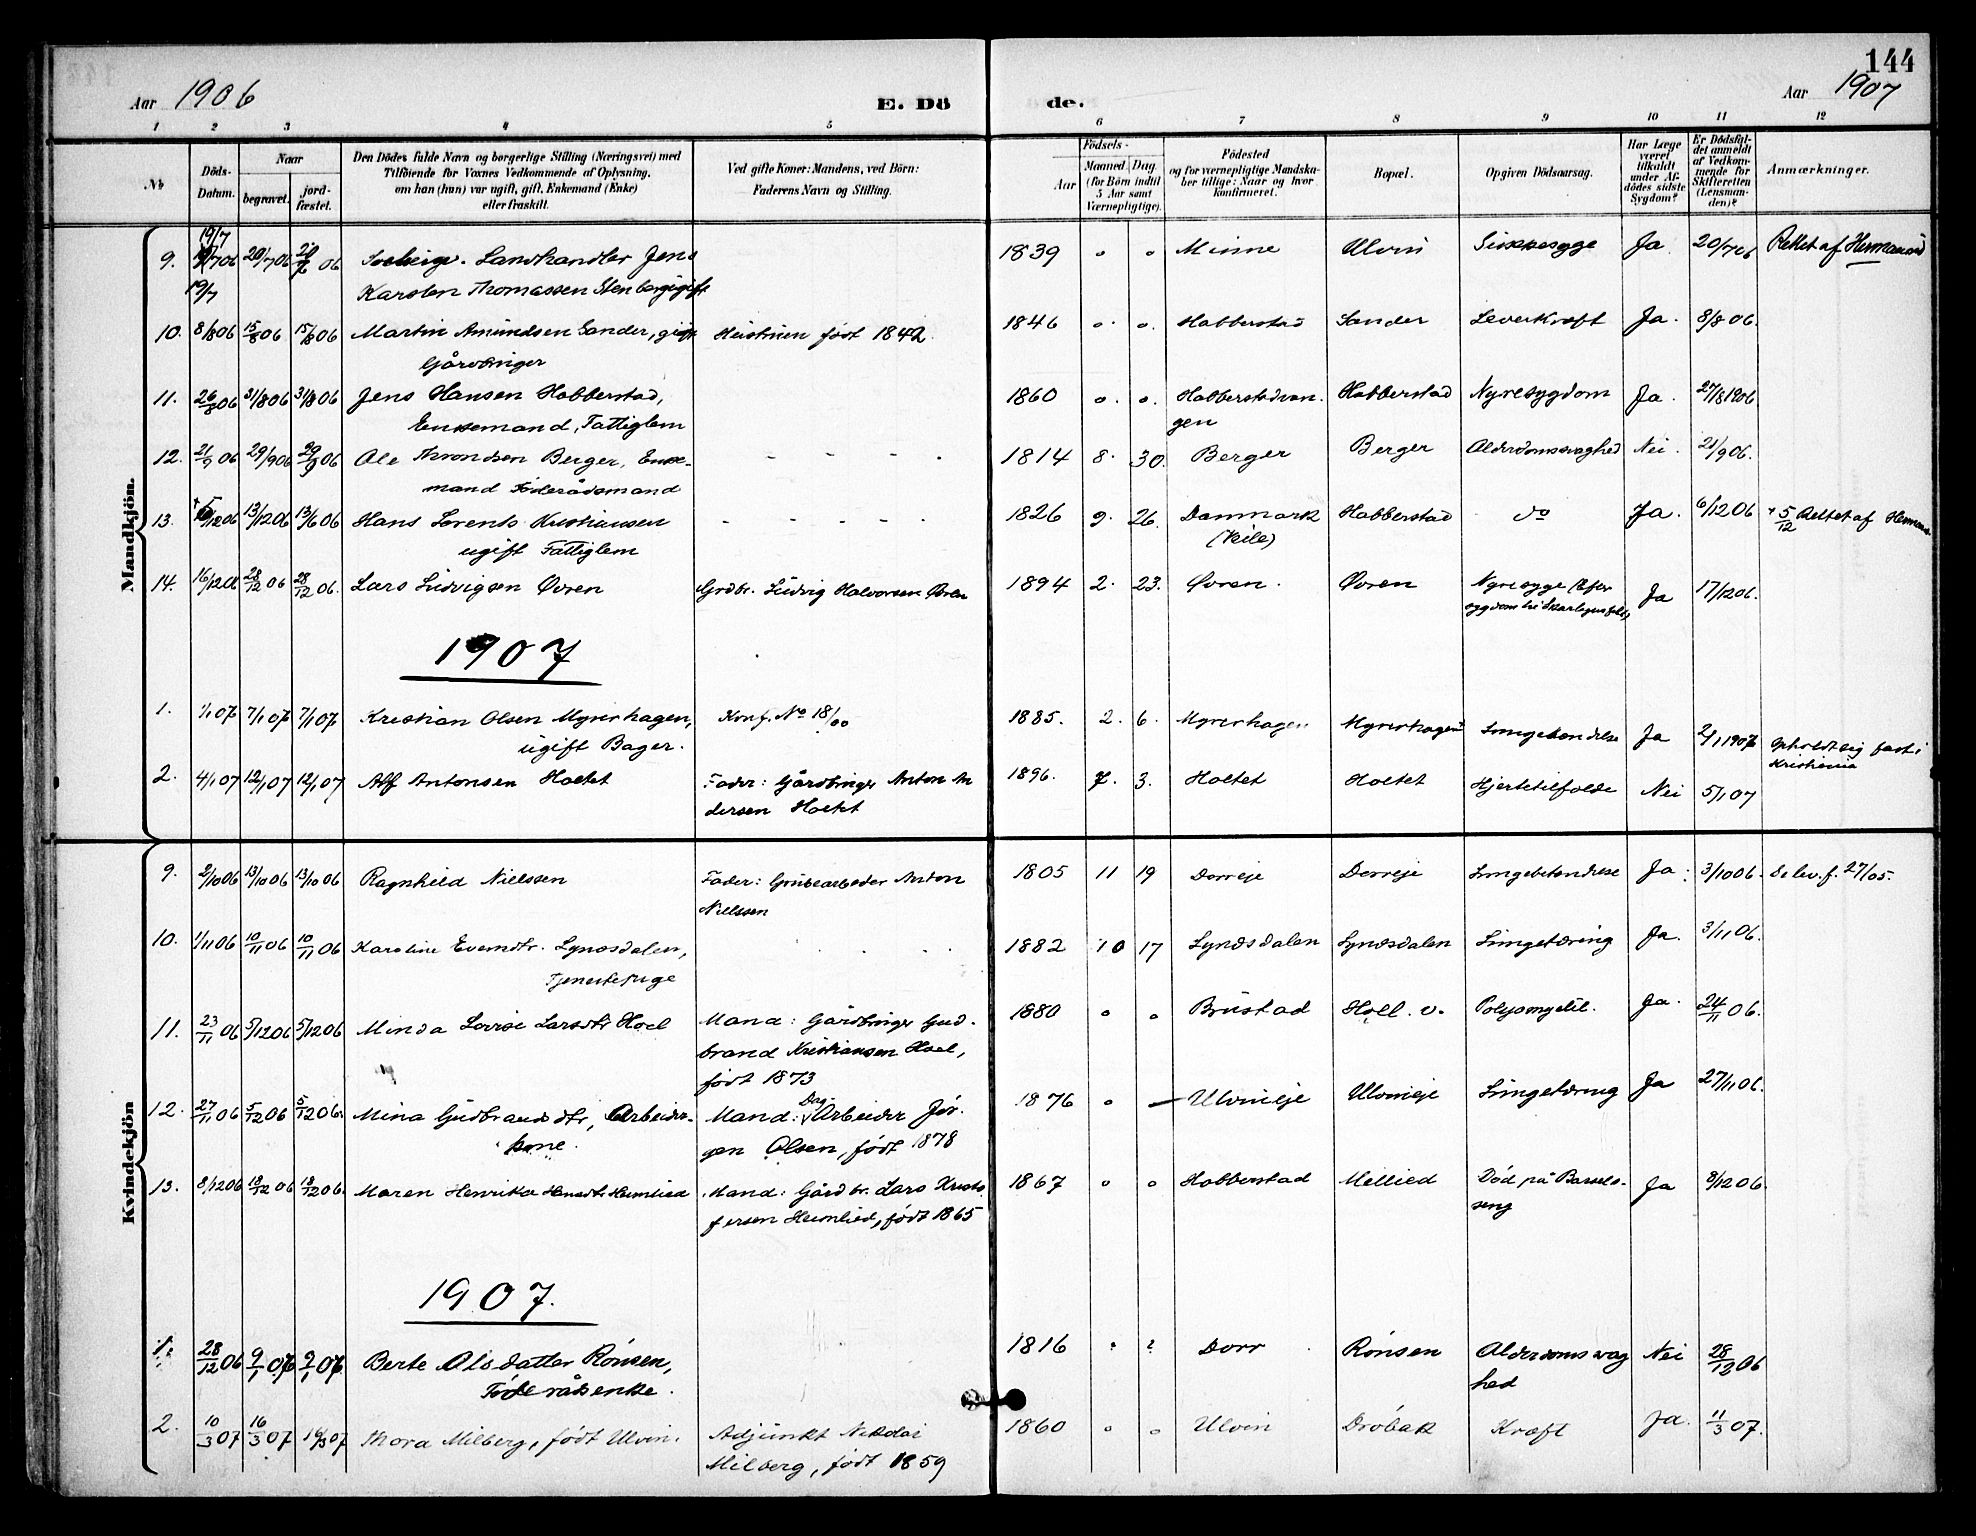 144
Aar 1906 E. Dö de. Aar 1907
1 2 3 4 5 6 7 8 9 10 11 12
No
Döds-Datum.
Naar
begravet.
jord-fæstet.
Den Dödes fulde Navn og borgerlige Stilling (Næringsvei) med
Tilföiende for Voxnes Vedkommende af Oplysning,
om han (hun) var ugift, gift, Enkemand (Enke)
eller fraskilt.
Ved gifte Koner: Mandens, ved Börn:
Faderens Navn og Stilling.
Födsels-
Aar
Maaned. Dag.
(for Börn indtil
5 Aar samt
Værnepligtige).
Födested
og for værnepligtige Mandska-
ber tillige: Naar og hvor
konfirmeret.
Bopæl.
Opgiven Dödsaarsag.
Har Læge
været
tilkaldt
under Af-
dödes sidste
Sygdom?
Er Dödsfal-
det anmeldt
af Vedkom-
mende for
Skifteretten
(Lensman-
den)?
Anmærkninger.
Mandkjön.
19/7
9. 20/7 06 Landhandler Jens 1839 " " Minne Ulvin Ja 20/7 06 Rettet af Hermanrud
19/7 Karsten Thomassen Stenberg gift
10. 8/8 06 15/8 06 15/8 06 Martin Amundsen Sander, gift født 1842. 1846 " " Habberstad Sander Leverkræft Ja. 8/8 06.
Gårdbruger
11. 26/8 06 31/8 06 31/8 06 Jens Hansen Habberstad, 1860 " " Habberstadvan- Habberstad Nyresygdom Ja. 27/8 1906
Enkemand, Fattiglem gen
12. 21/9 06 29/9 06 29/9 06 Ole Throndsen Berger, Enke- - - - - 1814 8. 30. Berger Berger Alderdomssvaghed Nei. 21/9 06.
mand Føderådsmand
13. 5/12 06 13/12 06 13/6 06 Hans Lorents Kristiansen - - - - 1826 9. 26. Danmark Habberstad do Ja. 6/12 06 + 5/12 Rettet af
ugift Fattiglem (Veile)
14. 16/12 06 28/12 06 28/12 06. Lars Ludvigsen Øvren Grdbr. Ludvig Halvorsen Øvren 1894 2. 23. Øvren. Øvren Nyresyge (Efter Ja 17/12 06.
1907
1. 1/1 07 7/1 07 7/1 07 Kristian Olsen Myrerhagen, Konf. No 18/00 1885. 2. 6. Myrerhagen Myrerhagen Lungebetændelse Ja 2/1 1907 opholdt sig fast i
ugift Bager. Kristiania
2. 4/1 07 12/1 07 12/1 07 Alf Antonsen Holtet Fader: Gårdbruger Anton An 1896. 7. 3. Holtet Holtet Hjertetilfælde Nei 5/1 07
dersen Holtet
Kvindekjön
9. 2/10 06 13/10 06 13/10 06 Ragnhild Nielssen Fader: Grubearbeider Anton 1805 11 19 Dorreje Dorreje Lungebetændelse Ja. 3/10 06. 27/05.
Nielssen
10. 1/11 06 10/11 06 10/11 06 Karoline Evensdtr. Lynæsdalen, 1882 10 17 Lynæsdalen Lynæsdalen Lungetæring Ja. 3/11 06.
Tjenestepige
11. 23/11 06 5/12 06 5/12 06 Minda Lovise Larsdtr Hoel Mand: Gårdbruger Gud- 1880 " " Brustad Hoel. v. Polyomyelit. Ja. 24/11 06.
brand Kristiansen Hoel,
født 1873
12. 27/11 06 5/12 06 5/12 06. Mina Gudbrandsdtr, Arbeider- Mand: Dag Arbeider Jør- 1876 " — Ulvineje Ulvineje Lungetæring Ja 27/11 06.
kone. gen Olsen, født 1878
13. 8/12 06 18/12 06 18/12 06. Maren Henrika Hansdtr Heimlied Mand: Gårdbr. Lars Kristo 1867 " " Habberstad Mellied Död på Barsels- Ja 9/12 06.
fersen Heimlied, født 1865 seng
1907.
1. 28/12 06 9/1 07 9/1 07. Berte Olsdatter Rønsen, 1816 ? ? Dorr Rønsen Alderdomssvag Nei 28/12 06
Føderådsenke. hed
2. 10/3 07 16/3 07 16/3 07 Thora Milberg, født Ulvin. Adjunkt Nikolai 1860 " " Ulvin Drøbak Kræft Ja. 11/3 07.
Milberg, født 1859